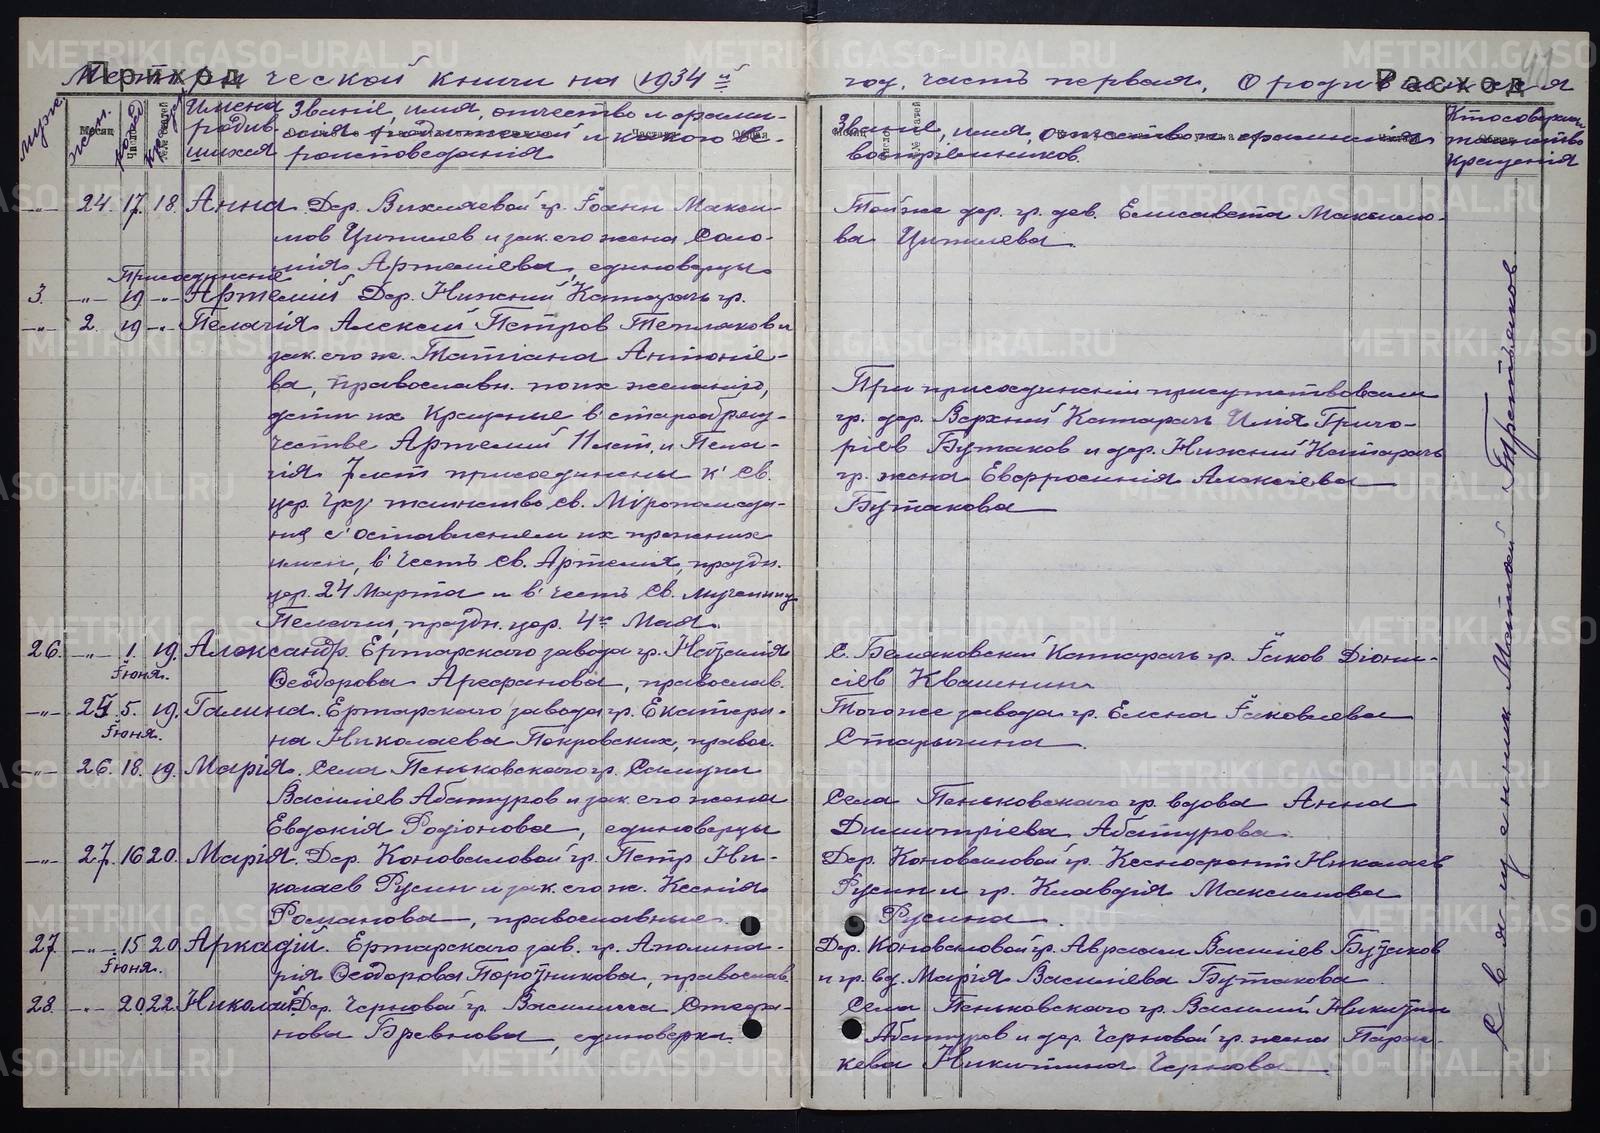 Метрической книги на 1934 й год, часть первая, О родившихся
Приход
Расход
муж.
жен.
Имена родив-
шихся
Званіе, имя, отчество и фами-
лія родителей и какого ве-
роисповеданія
Званіе, имя, отчество и фамилія
воспріемников.
Кто совершал
таинство
крещенія
-"- 24. 17. 18. Анна. Дер. Вихляевой гр. Іоанн Макси-
мов Ципилев и зак. его жена Соло-
мія Артеміева, единоверцы.
Тойже дер. гр. дев. Елисавета Максимо-
ва Ципилева.
Присоединение
3. -"- 19 -"- Артемий Дер. Нижний Катарач гр.
-"- 2. 19 -"- Пелагія. Алексей Петров Тепляков и
зак. его ж. Татіана Антоніе-
ва, православн. по их желанію,
дети их крещеные в старообряд-
честве Артемий 11 лет. и Пела-
гія 7 лет присоединены к св.
цер. чрез таинство св. Міропомаза-
ния с оставлением их прежних
имен, в честь св. Артемія, праздн.
цер. 24 Марта и в честь св. мученицы
Пелагии, праздн. цер. 4го Мая.
При присоединении присутствовали
гр. дер. Верхний Катарач Илия Григо-
ріев Бутаков и дер. Нижний Катарач
гр. жена Евфросинія Алексіева
Бутакова
26. -"- 1. 19. Александр. Ертарскаго завода гр. Наталія
Іюня. Феодорова Арефанова, православ.
С. Беляковский Катарач гр. Іаков Діони-
сіев Квашнин
-"- 25. 5. 19. Галина. Ертарскаго завода гр. Екатери-
Іюня. на Николаева Покровских, правос.
Тогоже завода гр. Елена Іаковлева
Старычина.
-"- 26. 18. 19. Марія. Села Пеньковскаго гр. Самуил
Василіев Абатуров и зак. его жена
Евдокія Родіонова, единоверцы
Села Пеньковскаго гр. вдова Анна
Димитріева Абатурова.
-"- 27. 16 20. Марія. Дер. Коноваловой гр. Петр Ни-
колаев Русин и зак. его ж. Ксенія
Романова, православные.
Дер. Коноваловой гр. Ксенофонт Николаев
Русин и гр. Клавдія Максимова
Русина.
27. -"- 15 20. Аркадій. Ертарскаго зав. гр. Аполина-
Іюня. рія Феодорова Поротникова, православ.
Дер. Коноваловой гр. Авраам Василіев Бутаков
и гр. вд. Марія Василіева Бутакова.
28. -"- 20 22. Николай. Дер. Черновой гр. Василисса Стефа-
нова Бревнова, единоверка.
Села Пеньковскаго гр. Василий Никитин
Абатуров и дер. Черновой гр. жена Парас-
кева Никитина Чернова
Священник Матвей Третьяков
METRIKI.GASO-URAL.RU